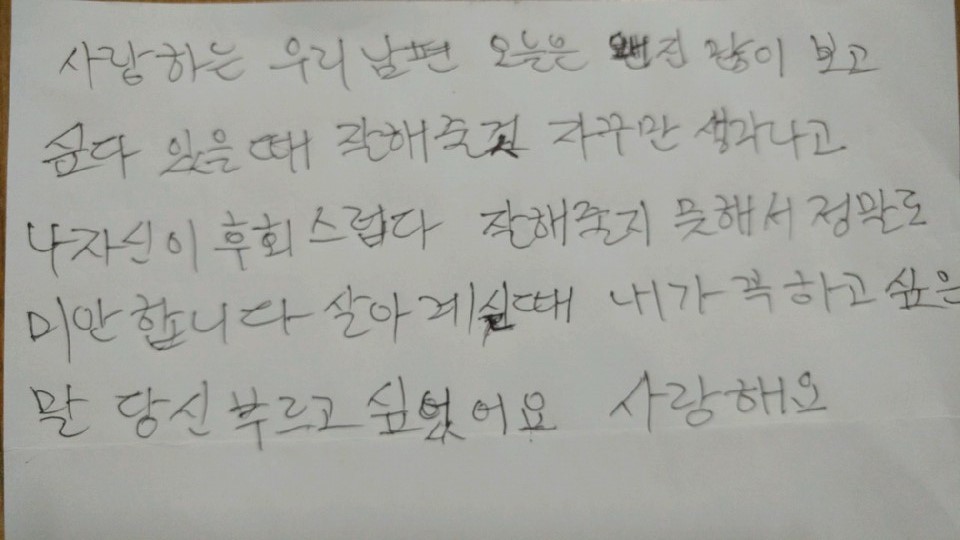 사랑하는 우리 남편 오늘은 왠진 많이 보고
싶다 있을때 잘해줄걸 자꾸만 생각나고
나자신이 후회스럽다 잘해줄지 못해서 정말로
미안합니다 살아계실때 내가 꼭하고싶은
말 당신부르고 싶었어요 사랑해요